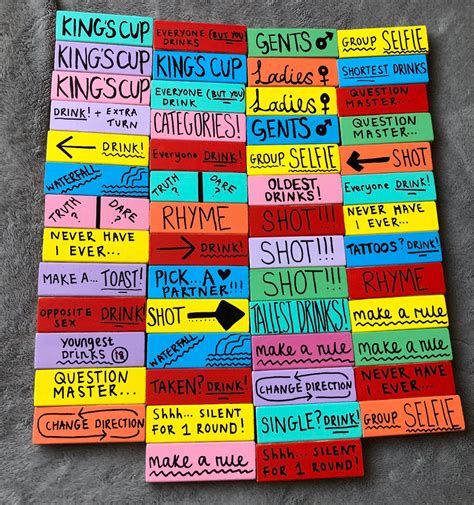 KING'S CUP
KING'S CUP
KING'S CUP
DRINK! + EXTRA
TURN
← DRINK!
WATERFALL
TRUTH ? DARE ?
NEVER HAVE
I EVER...
MAKE A... TOAST!
OPPOSITE
SEX DRINK!
Youngest
DRINKS 18
QUESTION
MASTER...
CHANGE DIRECTION
EVERYONE (BUT YOU)
DRINKS
KING'S CUP
EVERYONE (BUT YOU)
DRINK
CATEGORIES!
Everyone DRINK!
TRUTH ? DARE ?
RHYME
→ DRINK!
PICK...A ♥
PARTNER!!!
SHOT →
WATERFALL
TAKEN? DRINK!
Shhh... SILENT
FOR 1 ROUND!
make a rule
GENTS ♂
Ladies ♀
Ladies ♀
GENTS ♂
GROUP SELFIE
OLDEST,
DRINKS!
SHOT!!!
SHOT!!!
SHOT!!!
TALLEST DRINKS!
make a rule
CHANGE DIRECTION
SINGLE? DRINK!
Shhh... SILENT
FOR 1 ROUND!
GROUP SELFIE
SHORTEST DRINKS
QUESTION
MASTER...
QUESTION
MASTER...
← SHOT
Everyone DRINK!
NEVER HAVE
I EVER...
TATTOOS? DRINK!
RHYME
make a rule
make a rule
NEVER HAVE
I EVER...
GROUP SELFIE